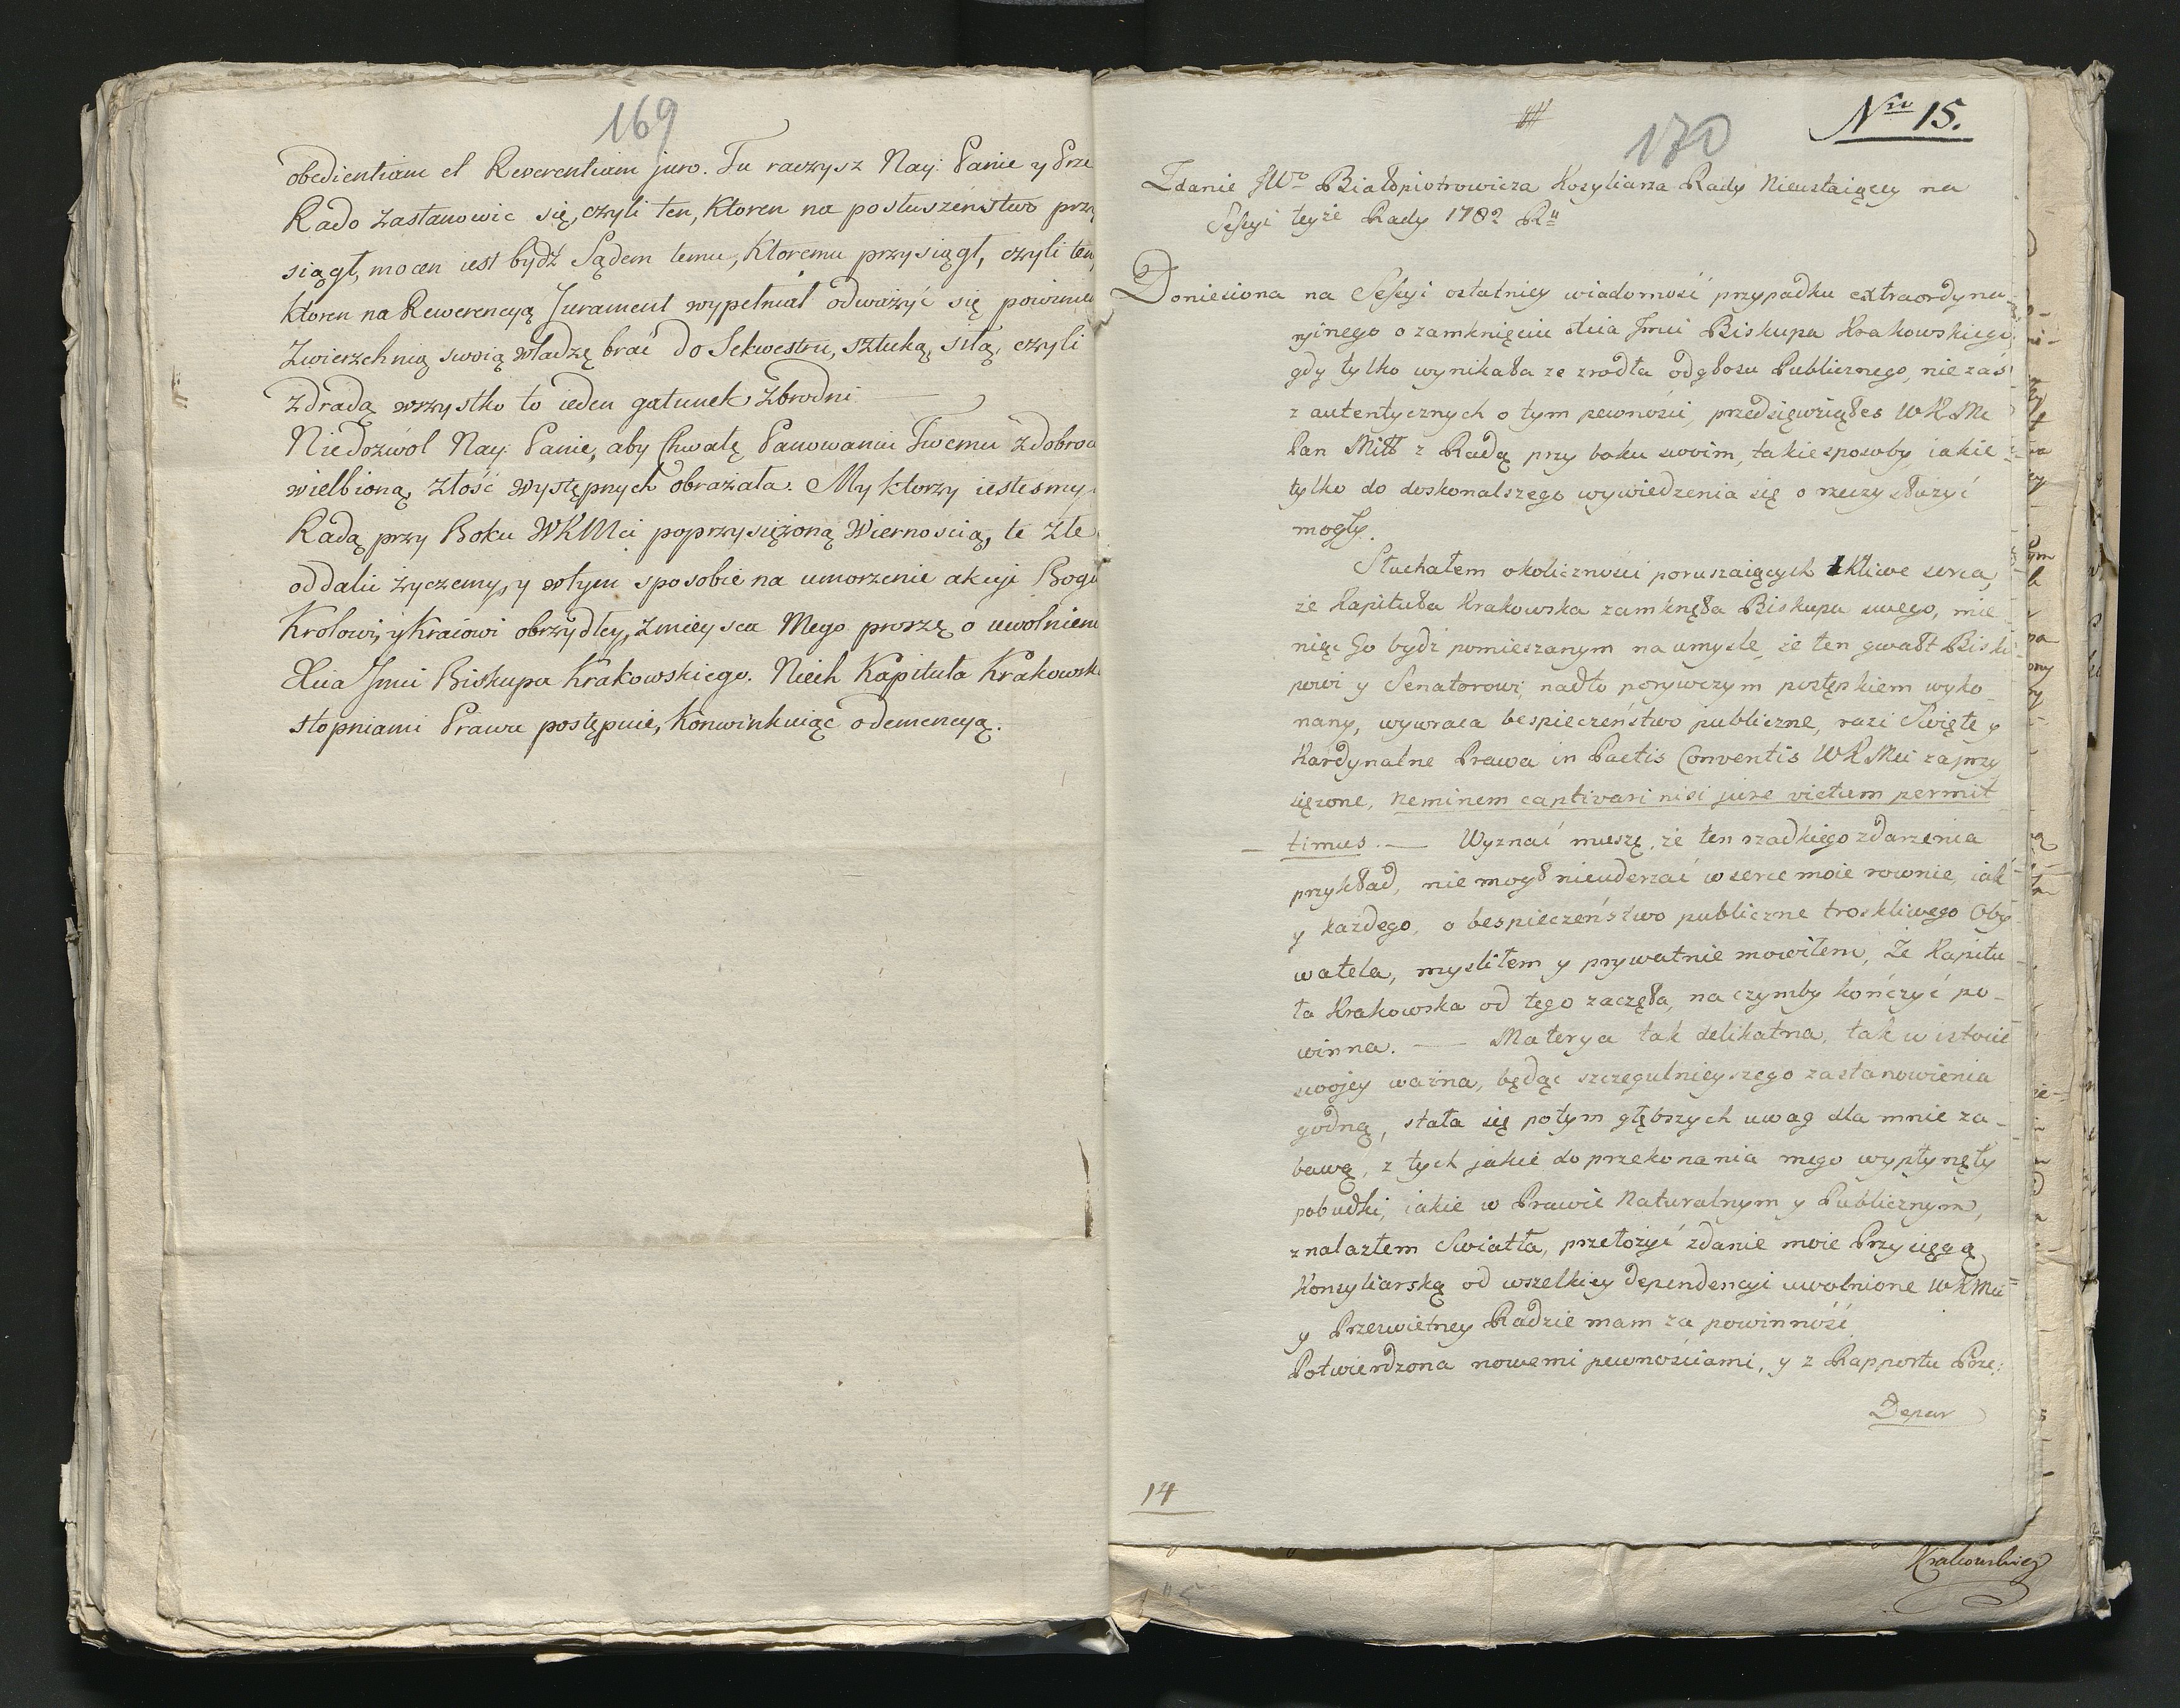 169
obedientiam et Reverentiam juro. Tu raczysz Nay: Panie y Prze
Rado zastanowic się, czyli ten, ktoren na posłuszeństwo przy
siągł, mocen iest bydź Sądem temu, ktoremu przysiągł, czyli ten,
ktoren na Rewerencyą Jurament wypełniał odważyć się powinien
Zwierzchnią swoią władzę brać do Sekwestru, sztuką, siłą, czyli
zdradą wszystko to ieden gatunek zbrodni
Niedozwol Nay: Panie, aby Chwałę Panowaniu Twemu z dobroci
wielbioną, złość występnych obrażała. My ktorzy iestesmy
Radą przy Boku WKMci poprzysiężoną Wiernością, te złe
oddalić życzemy, y wtym sposobie na umorzenie akcyi Bogu
Krolowi, y Kraiowi obrzydłey, z mieysca Mego proszę o uwolnienie
Xcia Jmci Biskupa Krakowskiego. Niech Kapituła Krakowska
stopniami Prawa postępuie, konwinkuiąc o demencyą.
170
Nro 15.
Zdanie JWo Białopiotrowicza Kosyliarza Rady Nieustaiącey na
Sessyi teyże Rady 1782 Ru
Doniesiona na Sessyi ostatniey wiadomość przypadku extraordyna
ryinego o zamknięciu Xcia Jmci Biskupa Krakowskiego,
gdy tylko wynikała ze zrodła odgłosu Publicznego, nie zaś
z autentycznych o tym pewności, przedsięwziąłes WKMc
Pan Miłł z Radą przy boku swoim, takie sposoby iakie
tylko do doskonalszego wywiedzenia się o rzeczy służyć
mogły.
Słuchałem okoliczności poruszaiących tkliwe serca,
że Kapituła Krakowska zamknęła Biskupa swego, mie
niąc Go bydź pomieszanym na umysle, że ten gwałt Bisku
powi y Senatorowi, nadto porywczym postępkiem wyko
nany, wywraca bespieczeństwo publiczne, razi Swięte y
Kardynalne Prawa in Pactis Conventis WKMci zaprzy
siężone, neminem captivari nisi jure victum permit
timus. — Wyznać muszę, że ten rzadkiego zdarzenia
przykład, nie mogł nieuderzać w serce moie rownie, iak
y każdego, o bespieczeństwo publiczne troskliwego Oby
watela, mysliłem y prywatnie mowiłem, Że Kapitu
ła Krakowska od tego zaczęła, na czymby kończyć po-
winna. — Materya tak delikatna, tak w istocie
swojey ważna, będąc szczegulnieyszego zastanowienia
godną, stała się potym głębszych uwag dla mnie za-
bawą, z tych jakie do przekonania mego wypłynęły
pobudki, iakie w Prawie Naturalnym y Publicznym,
znalazłem Swiatła, przełożyć zdanie moie Przysięgą
Konsyliarską od wszelkiey dependencyi uwolnione WKMci
y Przeswietney Radzie mam za powinność
Potwierdzona nowemi pewnościami, y z Rapportu Prze:
Depar
14
Krakowskiego